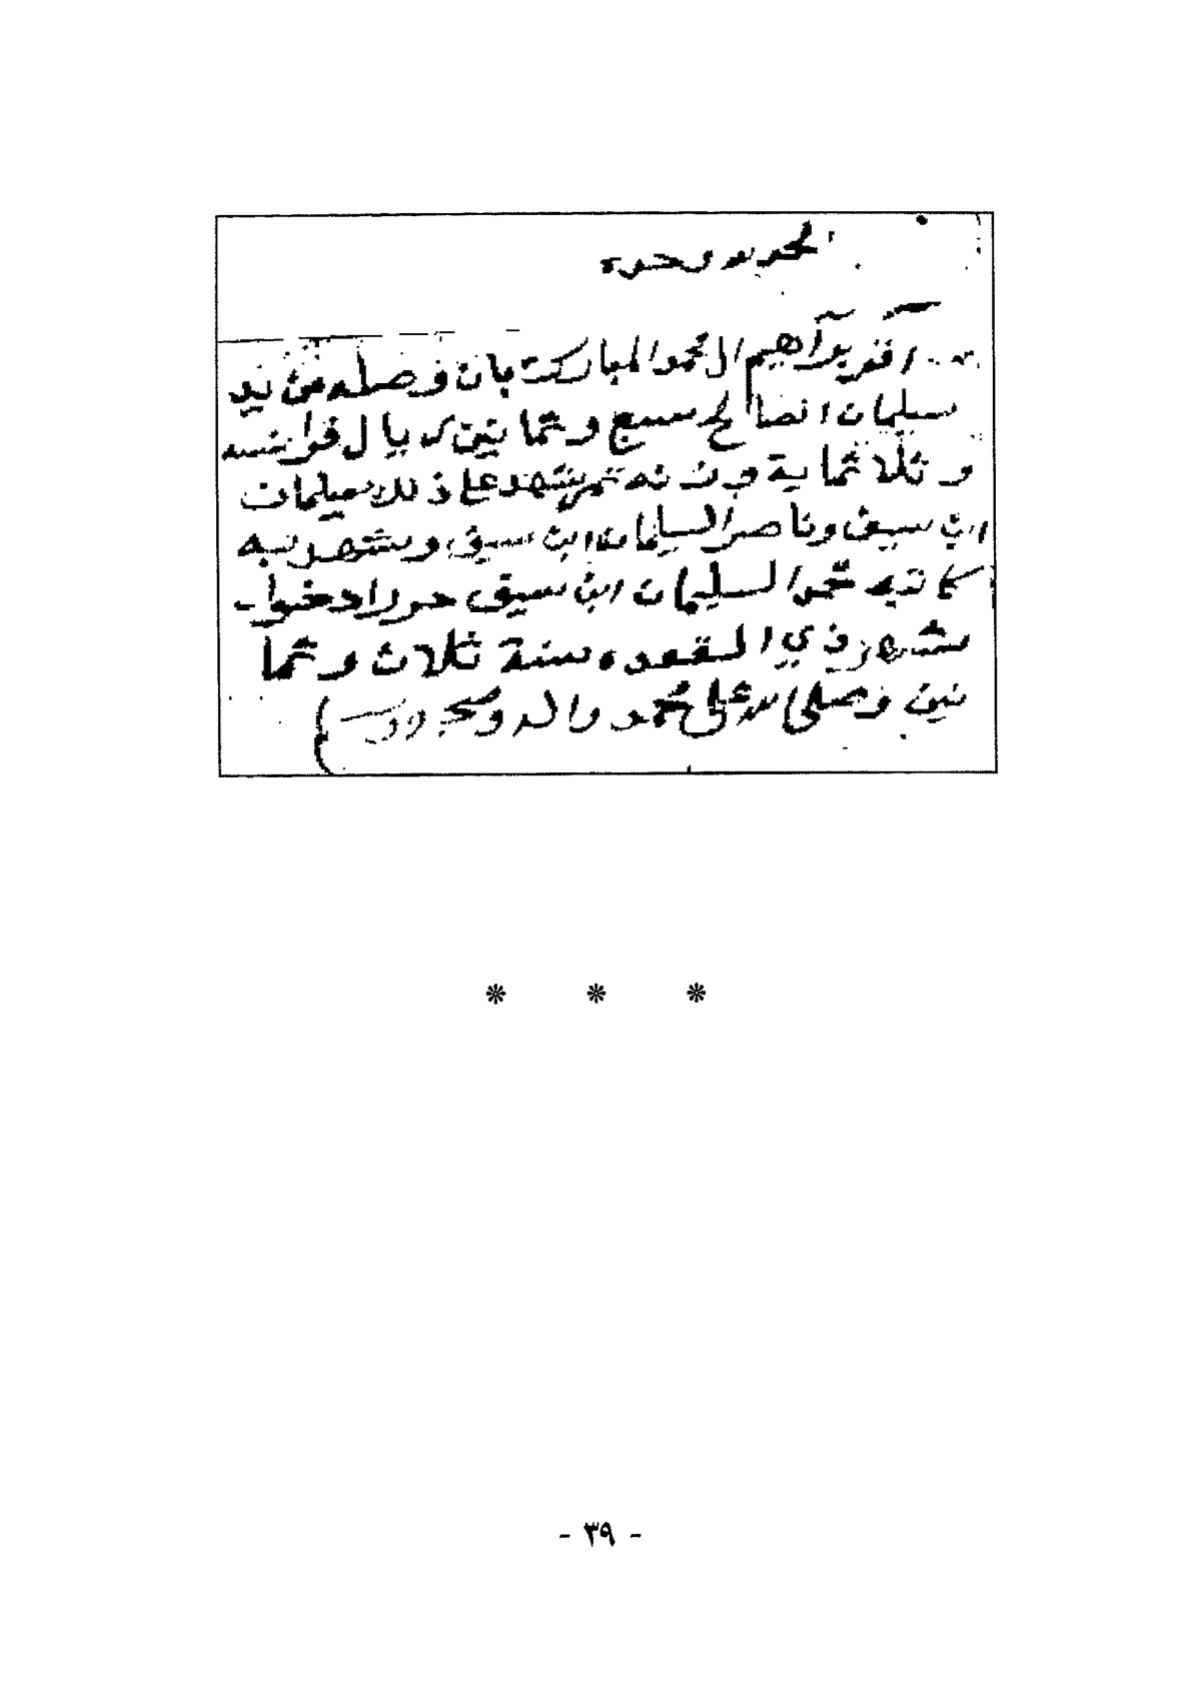 الحمد لله وحده
اقر براهيم ال محمد المبارك بان وصله من يد
سليمان الصالح سبع وثمانين ريال فرانسه
وثلاثماية وزنه تمر شهد على ذلك سليمان
ابن سيف وناصر السليمان ابن سيف وشهد به
كاتبه محمد السليمان ابن سيف حرر
شهر ذي القعده سنة ثلاث وثما
نين وصلى الله على محمد واله وصحبه وسلم
* * *
- ٣٩ -